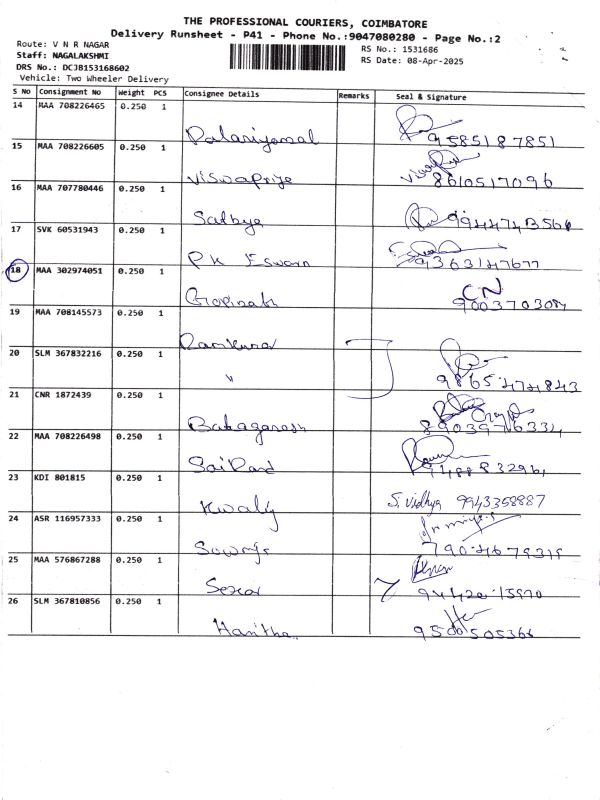 THE PROFESSIONAL COURIERS, COIMBATORE
Delivery Runsheet - P41 - Phone No.:9047080280 - Page No.:2
Route: V N R NAGAR
Staff: NAGALAKSHMI
DRS No.: DCJB153168602
Vehicle: Two Wheeler Delivery
RS No.: 1531686
RS Date: 08-Apr-2025
S No Consignment No Weight PCS Consignee Details Remarks Seal & Signature
14 MAA 708226465 0.250 1 9585187851
15 MAA 708226605 0.250 1 Viswapriye 8610517096
16 MAA 707780446 0.250 1 Sathya
17 SVK 60531943 0.250 1 PK Eswarn 9363147677
18 MAA 302974051 0.250 1 Gopinath CN
19 MAA 708145573 0.250 1
20 SLM 367832216 0.250 1 " 9865474843
21 CNR 1872439 0.250 1 8903976334
22 MAA 708226498 0.250 1
23 KDI 801815 0.250 1 Kwaliy S. Vidhya 9943358887
24 ASR 116957333 0.250 1
25 MAA 576867288 0.250 1
26 SLM 367810856 0.250 1 Haritha 9500505366